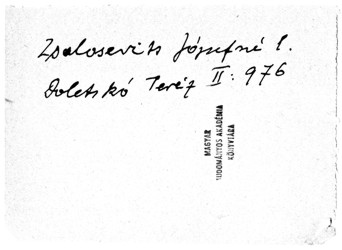 Zsalosevits Józsefné l.
Doletskó Teréz II: 976
MAGYAR
TUDOMÁNYOS AKADÉMIA
KÖNYVTÁRA